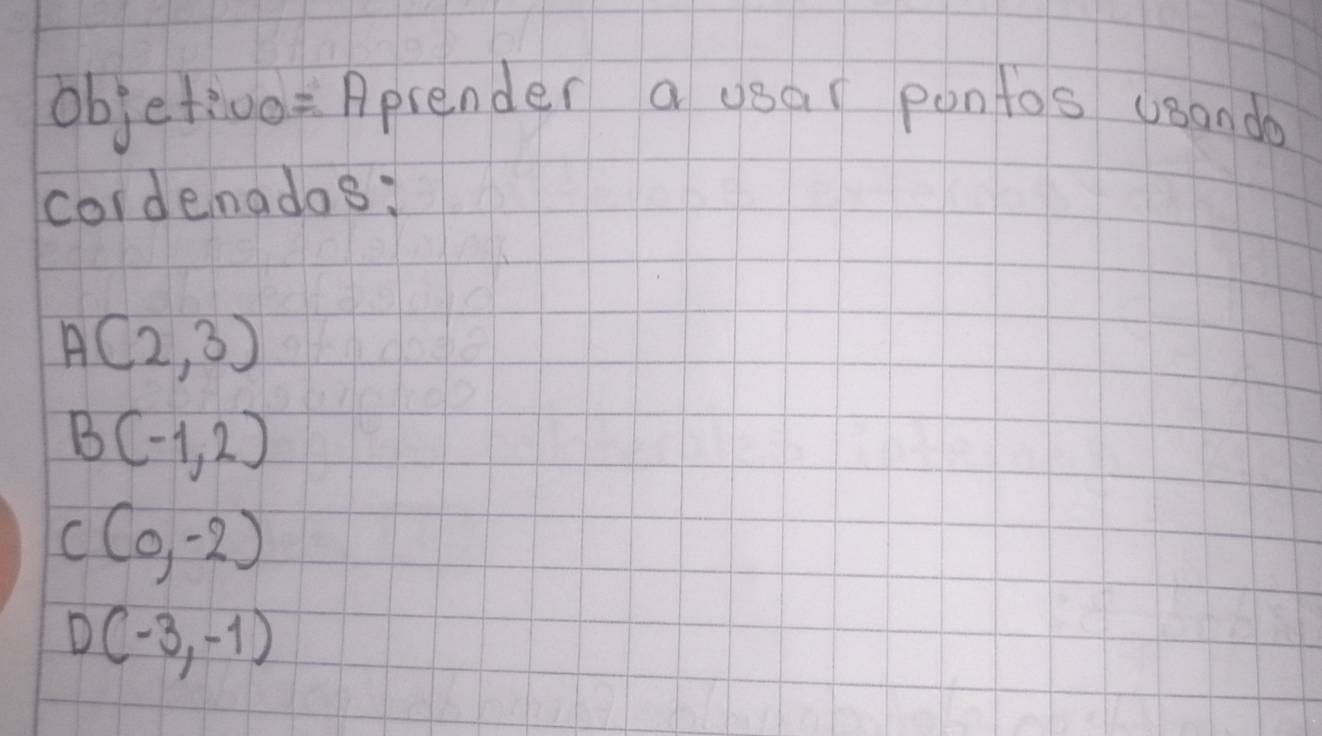 Objetivo= Aprender a usar pontos usando
cordenados:
A(2,3)
B(-1,2)
C(0,-2)
D(-3,-1)